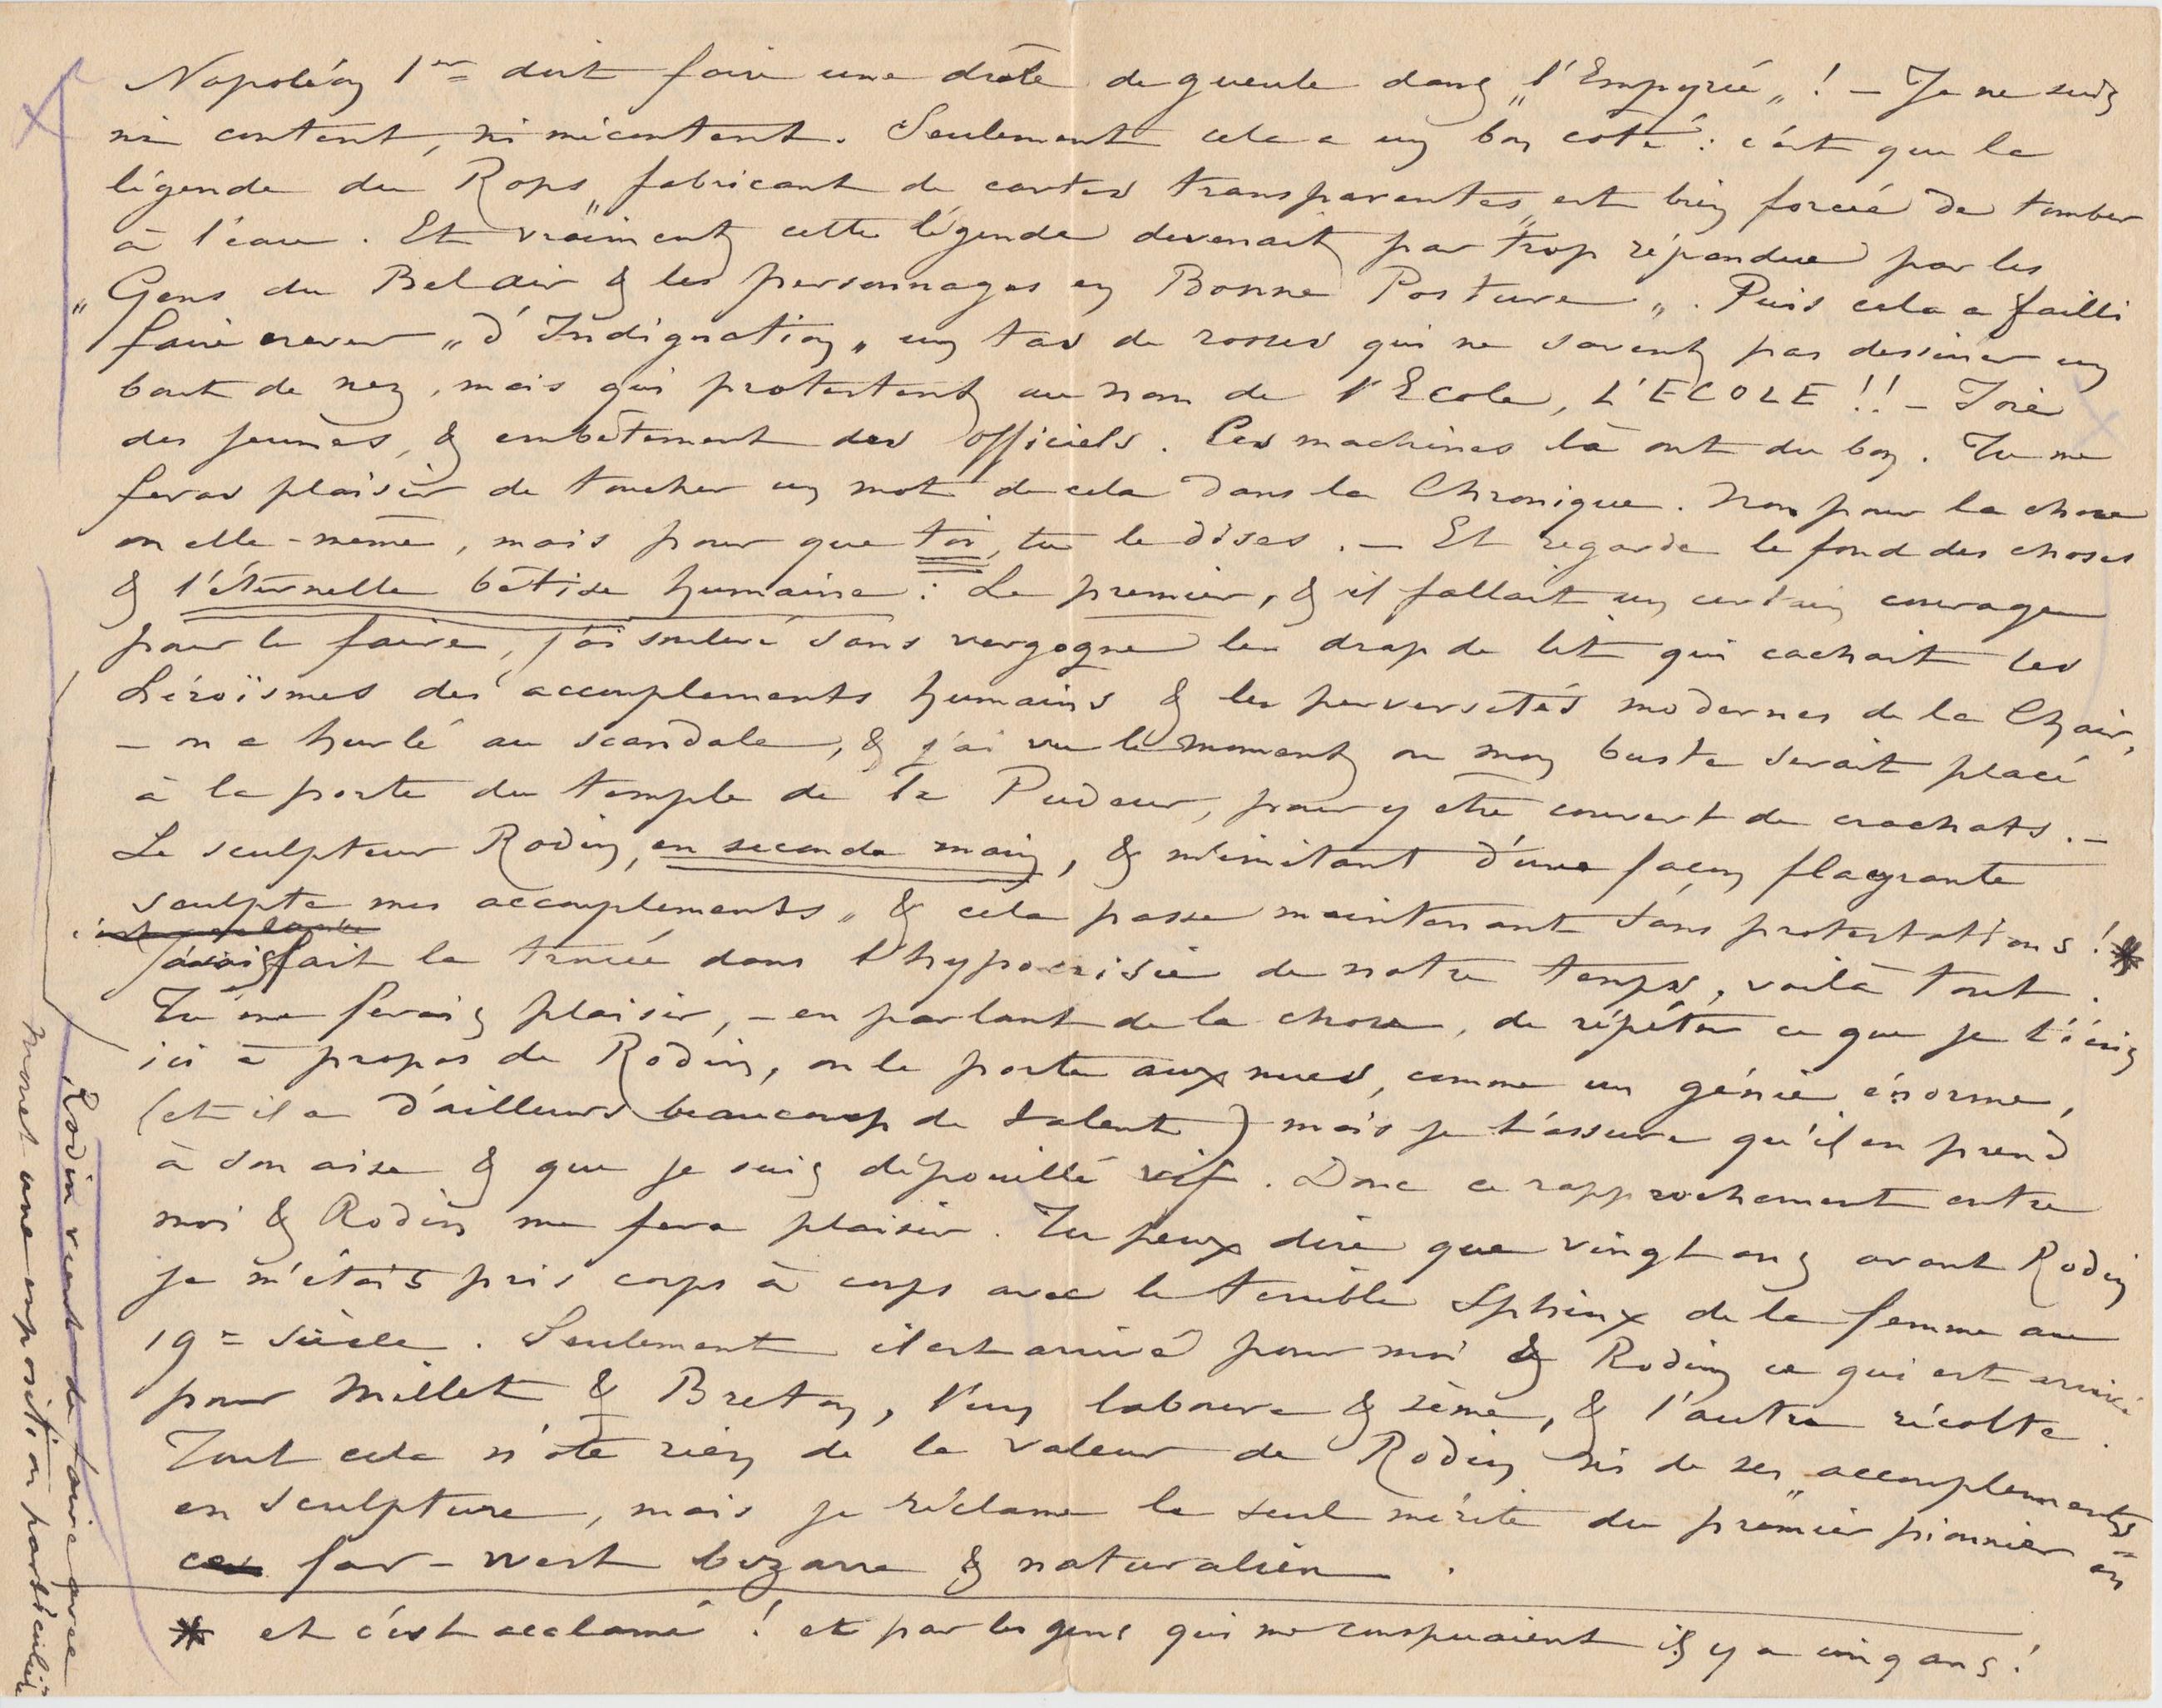 Napoléon 1er doit faire une drôle de gueule dans „l'Empyrée„ ! – Je ne suis
ni content, ni mécontent. Seulement cela a un bon côté : c'est que la
légende du Rops „fabricant de cartes transparentes„ est bien forcée de tomber
à l'eau. Et vraiment cette légende devenait par trop répandue par les
„Gens du Bel air & les personnages en Bonne Posture„. Puis cela a failli
faire crever „d'Indignation„ un tas de rosses qui ne savent pas dessiner un
bout de nez, mais qui protestent au nom de l'Ecole, L'ECOLE !! – Joie
des jeunes, & embêtement des officiels. Ces machines là ont du bon. Tu me
feras plaisir de toucher un mot de cela dans la Chronique. Non pour la chose
en elle-même, mais pour que toi, tu le dises. – Et regarde le fond des choses
& l'éternelle bêtise humaine : Le premier, & il fallait un certain courage
pour le faire, j'ai soulevé sans vergogne le drap de lit qui cachait les
héroïsmes des accouplements humains & les perversités modernes de la Chair,
– on a hurlé au scandale, & j'ai vu le moment ou mon buste serait placé
à la porte du temple de la Pudeur, pour y être couvert de crachats. –
Le sculpteur Rodin, en seconde main, & m'imitant d'une façon flagrante
sculpte mes accouplements„ & cela passe maintenant sans protestations ! *
J'avais fait la trouée dans l'hypocrisie de notre temps, voilà tout.
Tu me ferais plaisir, – en parlant de la chose, de répéter ce que je t'écris
ici à propos de Rodin, on le porte aux nues, comme un génie énorme,
(et il a d'ailleurs beaucoup de talent) mais je t'assure qu'il en prend
à son aise & que je suis dépouillé vif. Donc ce rapprochement entre
moi & Rodin me fera plaisir. Tu peux dire que vingt ans avant Rodin
je m'étais pris corps à corps avec le terrible Sphinx de la femme au
19e siècle. Seulement il est arrivé pour moi & Rodin ce qui est arrivé
pour Millet & Breton, l'un laboure & sème, & l'autre récolte.
Tout cela n'ôte rien de la valeur de Rodin ni de ses „accouplements„
en sculpture, mais je réclame le seul mérite du premier pionnier en
ce far-west bizarre & naturalien.
* et c'est acclamé ! et par les gens qui me conspuaient il y a cinq ans !
Rodin vient de faire avec
Monet une exposition particulière